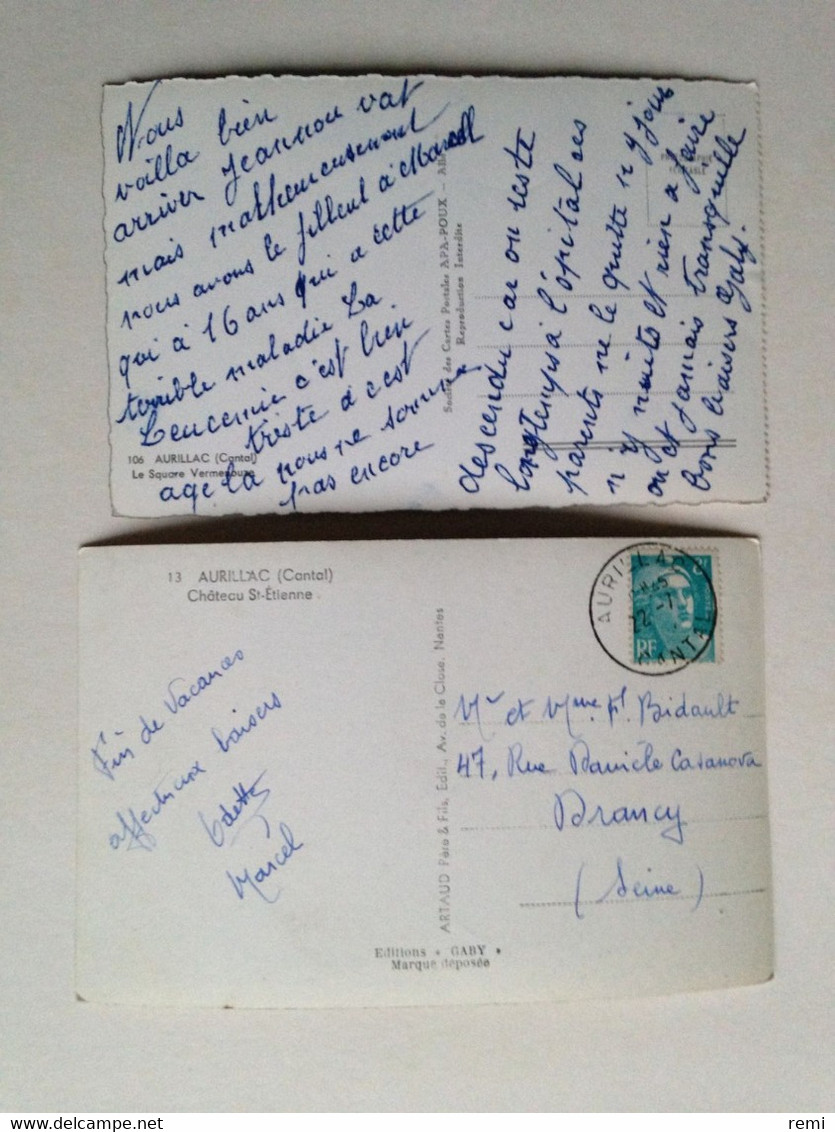 Nous
voilla bien
arriver Jeannou vat
mais malheureusement
nous avons le filleul à Marcel
qui à 16 ans qui a cette
terrible maladie La
Leucemie c'est bien
triste a cest
age la nous ne somme
pas encore
106 AURILLAC (Cantal)
Le Square Vermenouze
Société des Cartes Postales APA-POUX -
Reproduction Interdite
descendu car on reste
longtemps à l'opital ses
parents ne le quitte ni jour
ni nuits et rien a faire
on et jamais tranquille
Bons baisers Gaby.
13 AURILLAC (Cantal)
Château St-Étienne
Fin de Vacances
affectueux baisers
Odette
Marcel
ARTAUD Père & Fils, Edit., Av. de la Close. Nantes
Editions * GABY *
Marque déposée
AURILLAC
22 -7
CANTAL
RF
Mr et Mme F. Bidault
47, Rue Danièle Casanova
Drancy
(Seine)
delcampe.net
remi